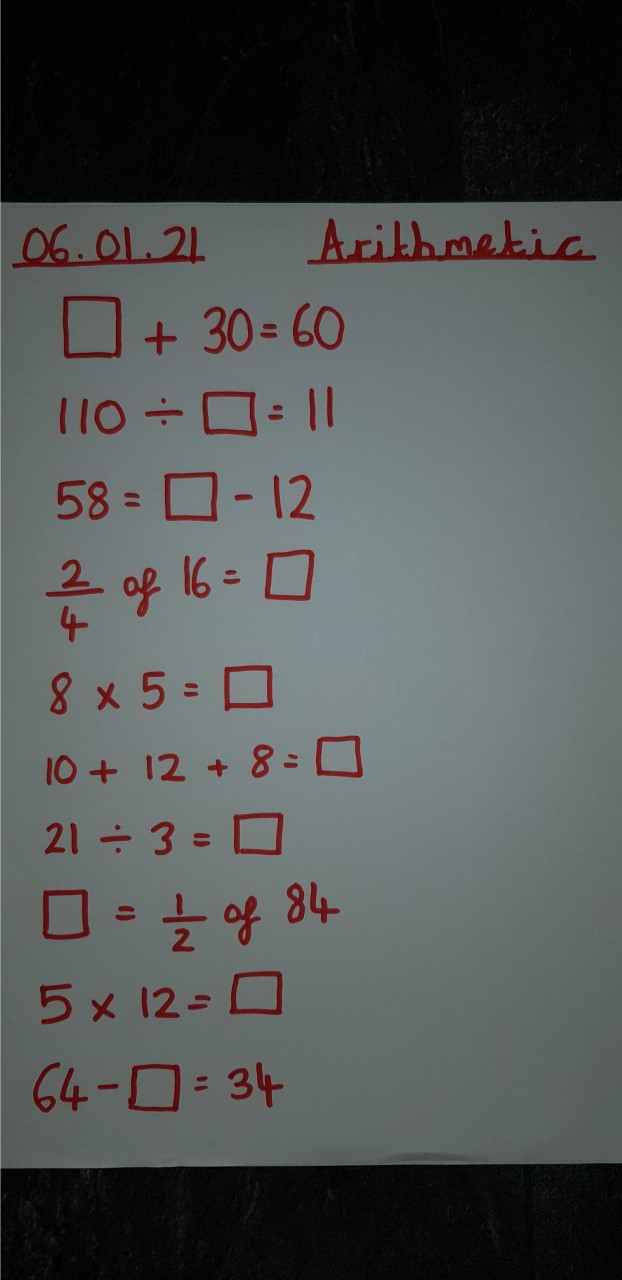 06.01.21 Arithmetic
□ + 30 = 60
110 ÷ □ = 11
58 = □ - 12
2/4 of 16 = □
8 × 5 = □
10 + 12 + 8 = □
21 ÷ 3 = □
□ = 1/2 of 84
5 × 12 = □
64 - □ = 34